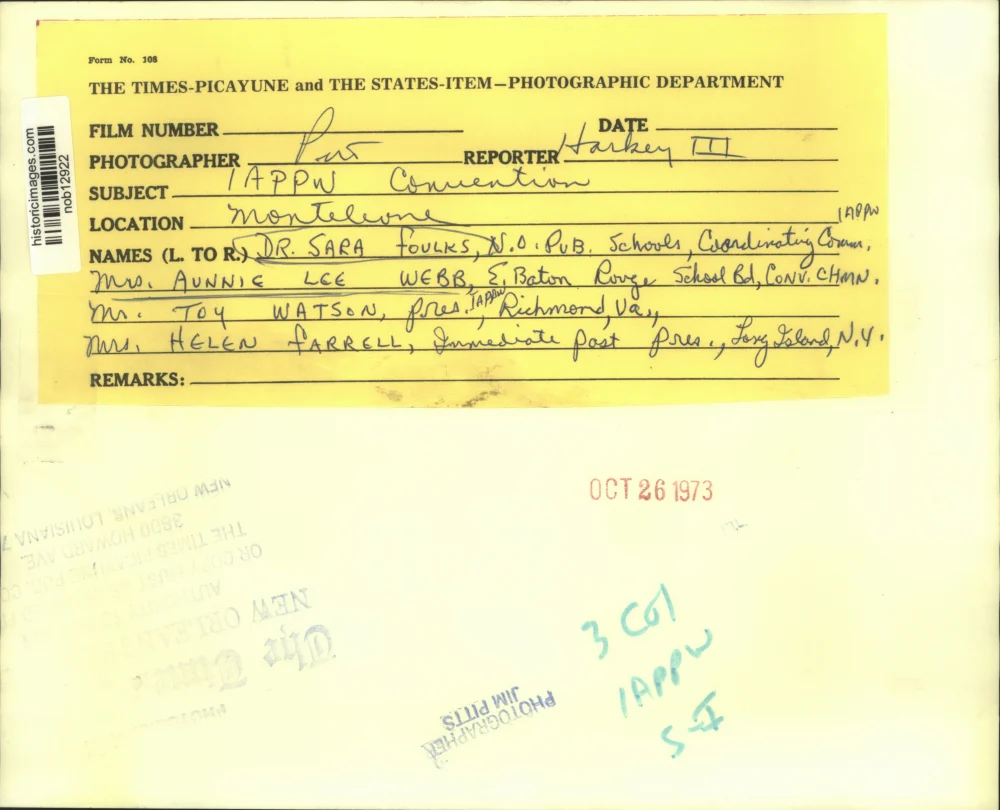 Form No. 108
THE TIMES-PICAYUNE and THE STATES-ITEM—PHOTOGRAPHIC DEPARTMENT
FILM NUMBER
DATE
PHOTOGRAPHER
REPORTER Harkey III
SUBJECT IAPPW Convention
LOCATION Monteleone
IAPPW
NAMES (L. TO R.) DR. SARA FOULKS, N.O. PUB. Schools, Coordinating Comm.
Mrs. AUNNIE LEE WEBB, E. Baton Rouge School Bd, CONV. CHMN.
Mr. TOY WATSON, Pres. IAPPW, Richmond, Va.,
Mrs. HELEN FARRELL, Immediate Past Pres., Long Island, N.Y.
REMARKS:
historicimages.com
nob12922
OCT 26 1973
NEW ORLEANS, LOUISIANA 7
3800 HOWARD AVE
THE TIMES-PICAYUNE PUB. CO
OR COPY MUST
AUTHORITY
NEW ORLEANS
The Times
3 Col
IAPPW
S-I
PHOTOGRAPHER
JIM PITTS